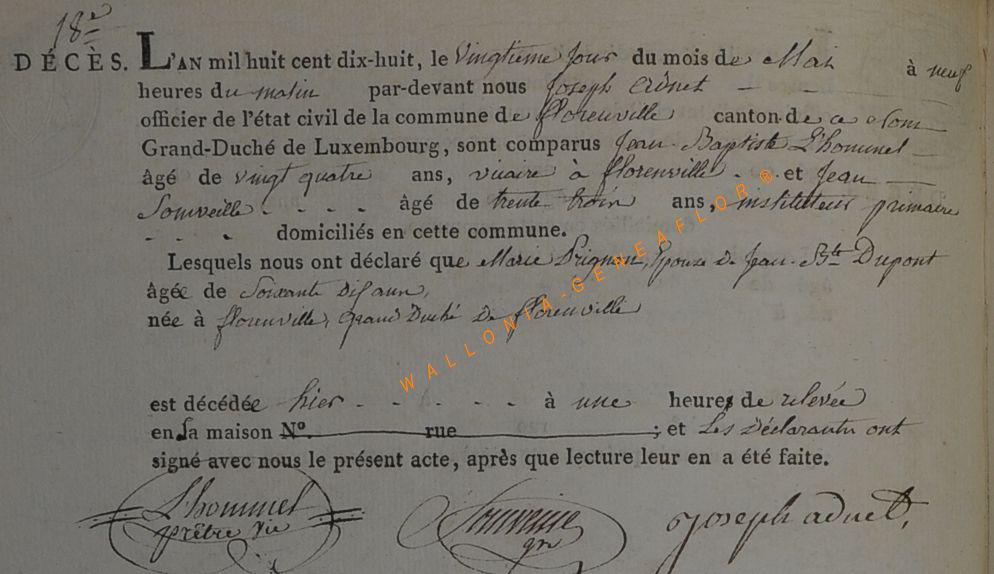 18e
DÉCÈS. L'AN mil huit cent dix-huit, le Vingtieme Jour du mois de Mai à neuf
heures du matin par-devant nous Joseph adnet
officier de l'état civil de la commune de florenville canton de ce Nom
Grand-Duché de Luxembourg, sont comparus Jean Baptiste L'hommel
âgé de vingt quatre ans, vicaire à florenville et Jean
Somveille âgé de trente trois ans, instituteur primaire
domiciliés en cette commune.
Lesquels nous ont déclaré que Marie Prignon, Epouse De Jean Bte Dupont
âgée de Soixante dix ans,
née à florenville, grand Duché De florenville
WALLONIA-GENEAFLOR ®
est décédée hier à une heure de relevée
en sa maison N°. rue ; et Les Déclarants ont
signé avec nous le présent acte, après que lecture leur en a été faite.
L'hommel Joseph adnet,
prêtre vic